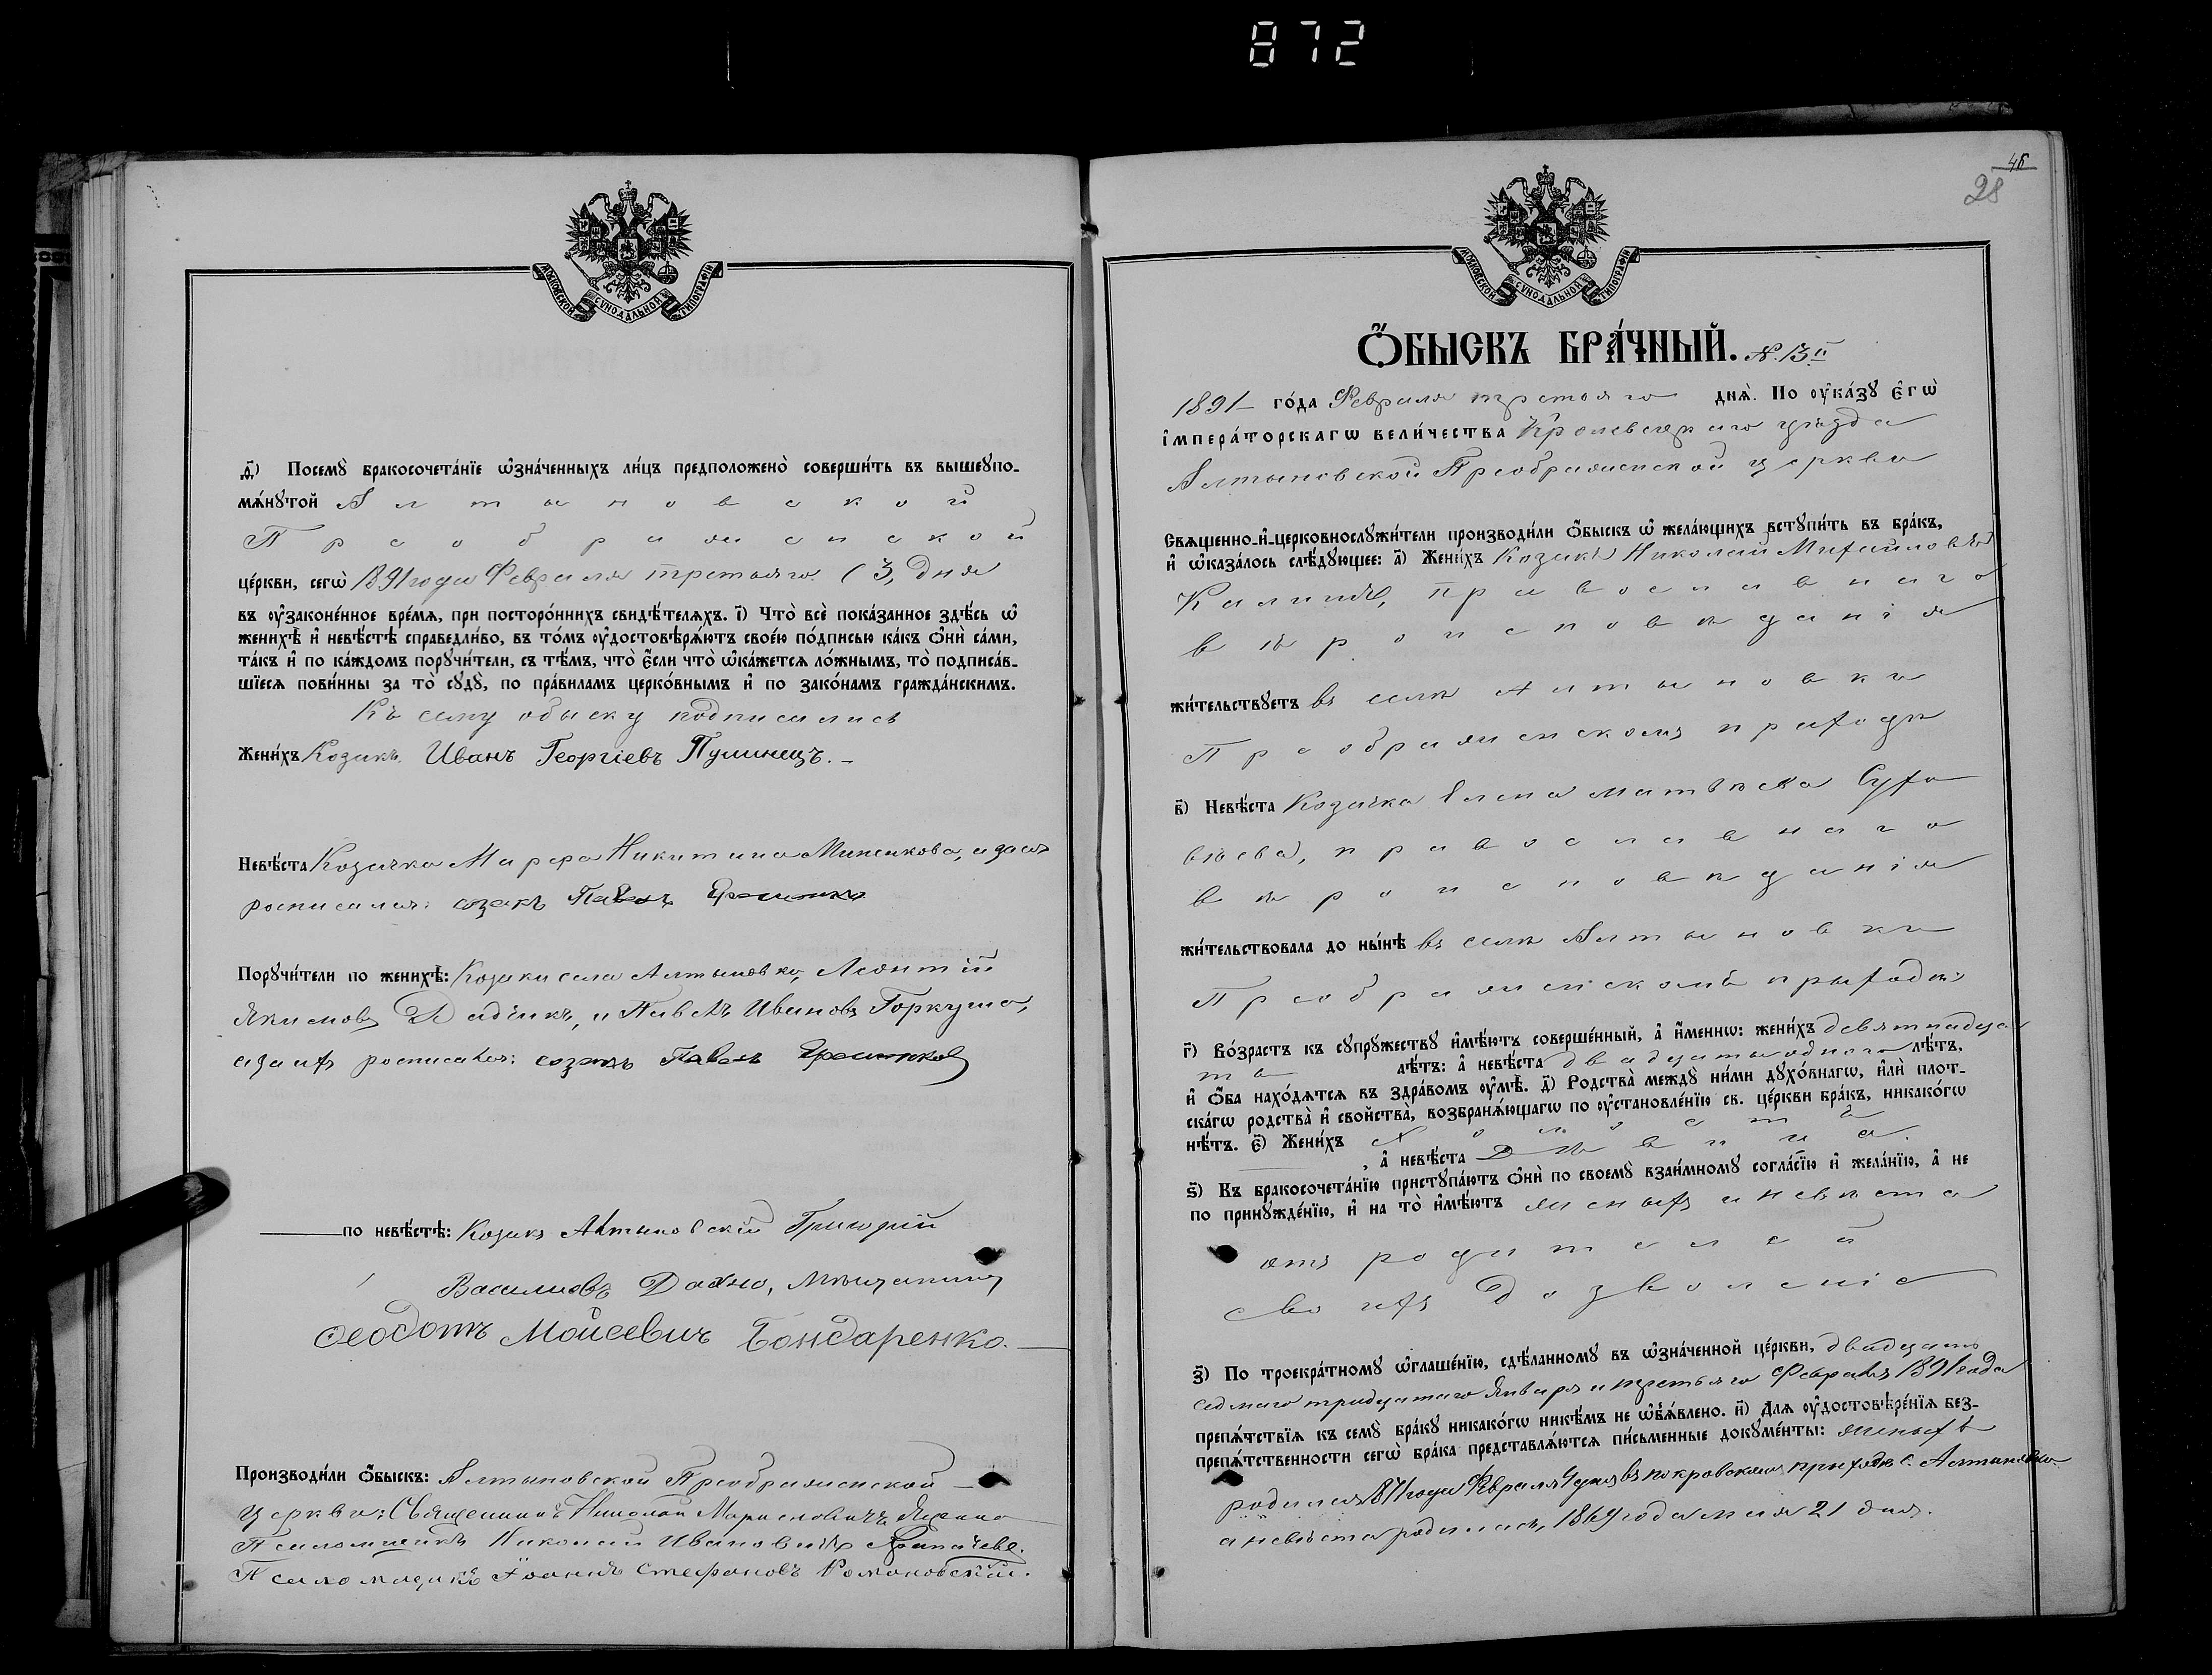 872
МОСКОВСКОЙ СѴНОДАЛЬНОЙ ТИПОГРАФІИ
д҃і) Посемꙋ̀ бракосочета́нїе ѡ҆зна́ченныхъ ли́цъ предположенѡ̀ соверши́ть въ вышеꙋпо-
мѧ́нꙋтой Алтыновской
Преображенской
це́ркви, сегѡ̀ 1891 года Февраля третьяго (3, дня
въ ᲂу҆зако́ненное вре́мѧ, при посторо́ннихъ свидѣ́телѧхъ. і҃) Что̀ всѐ пока́занное здѣ́сь ѡ҆
женихѣ̀ и҆ невѣ́стѣ справедли́во, въ то́мъ ᲂу҆достовѣрѧ́ютъ свое́ю по́дписью ка́къ ѻ҆нѝ са́ми,
та́къ и҆ по ка́ждомъ порꙋчи́тели, съ тѣ́мъ, что̀ є҆́сли что̀ ѡ҆ка́жетсѧ ло́жнымъ, то̀ подписа́в-
шїесѧ пови́нны за то̀ сꙋдꙋ̀, по пра́виламъ церко́внымъ и҆ по зако́намъ гражда́нскимъ.
Къ сему обыску подписались
Жени́хъ Козакъ Иванъ Георгіевъ Пулинецъ.
Невѣ́ста Козачка Марфа Никитина Миненкова, а за нея
росписался: козакъ Павелъ
Порꙋчи́тели по женихѣ̀: Козаки села Алтыновки, Леонтій
Якимовъ Дадёикъ, и Павелъ Ивановъ Горкуша,
а за ихъ росписался: козакъ Павелъ
по невѣ́стѣ: Козакъ Алтыновскій Григорій
Васильевъ Дахно, Мѣщанинъ
Ѳеодотъ Мойсевичъ Бондаренко.
Производи́ли ѻ҆́быскъ: Алтыновской Преображенской
церкви: Священникъ Николай
Псаломщикъ Николай Ивановичъ
Псаломщикъ Іоаннъ Стефановъ Романовскій.
28
МОСКОВСКОЙ СѴНОДАЛЬНОЙ ТИПОГРАФІИ
Ѻ҆́БЫСКЪ БРА́ЧНЫЙ. №. 13й
1891 го́да Февраля третьяго днѧ̀. По ᲂу҆ка́зꙋ є҆гѡ̀
і҆мпера́торскагѡ вели́чества Кролевецкаго уѣзда
Алтыновской Преображенской церкви
Свѧщенно-и҆-церковнослꙋжи́тели производи́ли ѻ҆́быскъ ѡ҆ жела́ющихъ встꙋпи́ть въ бра́къ,
и҆ ѡ҆каза́лось слѣ́дꙋющее: а҃) Жени́хъ Козакъ Николай Михайловъ
Калина, православнаго
вѣроисповѣданія
жи́тельствꙋетъ въ селѣ Алтыновкѣ
Преображенскомъ приходѣ
в҃) Невѣ́ста Козачка Елена Матвѣева Сухо
віева, православнаго
вѣроисповѣданія
жи́тельствовала до ны́нѣ въ селѣ Алтыновкѣ
Преображенскомъ приходѣ
г҃) Во́зрастъ къ сꙋпрꙋ́жествꙋ и҆мѣ́ютъ соверше́нный, а҆ и҆́меннѡ: жени́хъ девятнадца
ти лѣ́тъ: а҆ невѣ́ста двадцатиодного лѣ́тъ,
и҆ ѻ҆́ба нахо́дѧтсѧ въ здра́вомъ ᲂу҆мѣ̀. д҃) Родства̀ междꙋ̀ ни́ми дꙋхо́внагѡ, и҆лѝ плот-
ска́гѡ родства̀ и҆ свойства̀, возбранѧ́ющагѡ по ᲂу҆становле́нїю св. це́ркви бра́къ, никако́гѡ
нѣ́тъ. є҃) Жени́хъ Холостъ
, а҆ невѣ́ста Дѣвица.
ѕ҃) Къ бракосочета́нїю пристꙋпа́ютъ ѻ҆нѝ по своемꙋ̀ взаи́мномꙋ согла́сїю и҆ жела́нїю, а҆ не
по принꙋжде́нїю, и҆ на то̀ и҆мѣ́ютъ женихъ и невѣста
отъ родителей
своихъ дозволеніе
з҃) По троекра́тномꙋ ѡ҆глаше́нїю, сдѣ́ланномꙋ въ ѡ҆зна́ченной це́ркви, двадцать
седмаго тридцатаго Января и третьяго Февраля 1891 года
препѧ́тствїѧ къ семꙋ̀ бра́кꙋ никако́гѡ никѣ́мъ не ѡ҆б̾ѧ́влено. и҃) Длѧ ᲂу҆достовѣре́нїѧ без-
препѧ́тственности сегѡ̀ бра́ка представлѧ́ютсѧ пи́сьменные докꙋме́нты: женихъ
родился 1871 года Февраля 4 дня въ покровскомъ приходѣ с. Алтыновки
а невѣста родилась, 1869 года мая 21 дня.